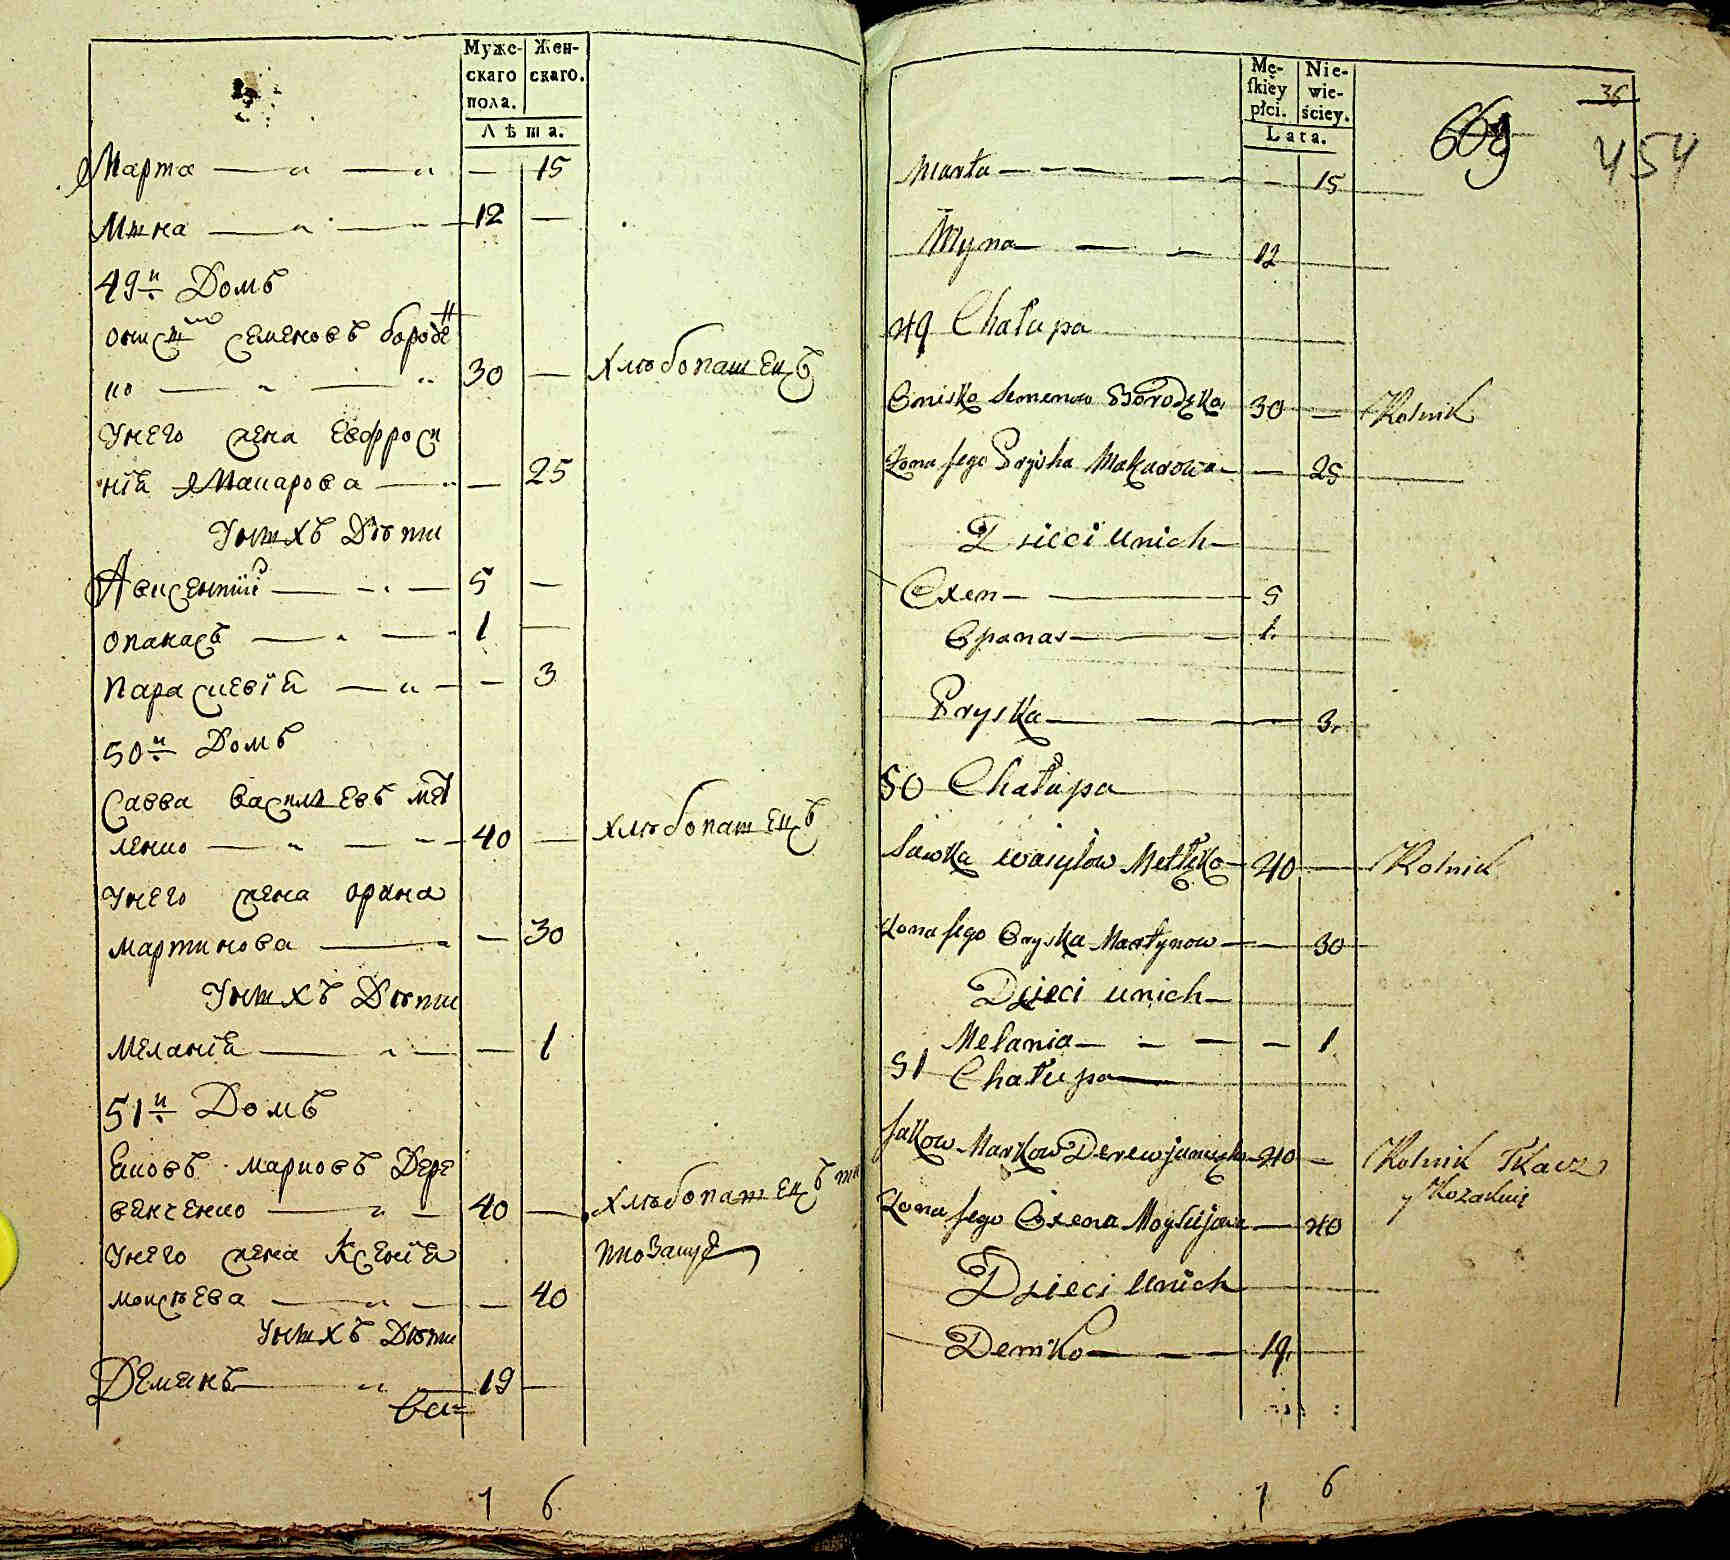 Муже-
скаго
пола.
Жен-
скаго.
Лѣта.
Марта 15
Мина 12
49й Домъ
Ониско Семеновъ бороден
ко 30 Хлѣбопашецъ
Унего жена Евфроси
нїя Макарова 25
Унихъ Дѣти
Авксентий 5
опанасъ 1
Параскевїя 3
50й Домъ
Савва Васильевъ мет
ленко 40 хлѣбопашецъ
Унего жена орина
мартинова 30
Унихъ Дѣти
Меланїя 1
51й Домъ
Яковъ марковъ Дере
вянченко 40 хлѣбопашецъ тка
Унего жена Ксенїя
моисѣева 40
Унихъ Дѣти
Демянъ 19
ва=
7 6
Mę-
ſkiey
płci.
Nie-
wie-
ściey.
Lata.
36
669
454
Marta 15
Myna 12
49 Chałupa
Onisko Semenow Borodęko 30 Rolnik
Żona Jego Pryska Makarowa 25
Dzieci unich
Oxen 5
Opanas 1
Pryska 3
50 Chałupa
Sawka Wasylow Metłęko 40 Rolnik
Żona Jego Oryska Martynow 30
Dzieci unich
Melania 1
51 Chałupa
Jakow Markow Derewjanczęko 40 Rolnik Tkacz
y
Żona Jego Oxena Moysiijowa 40
Dzieci unich
Demko 19
7 6